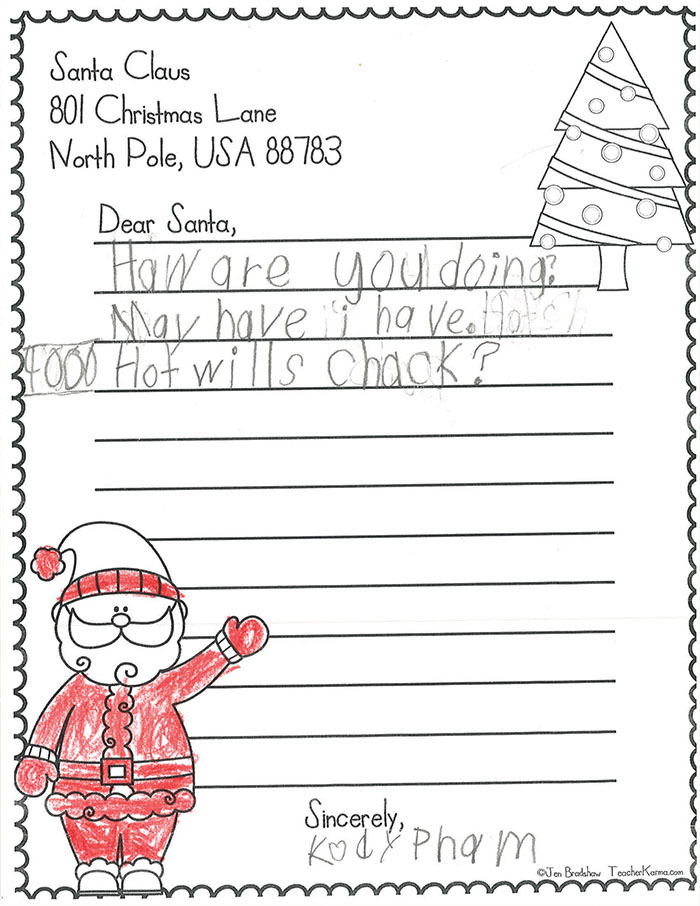 Santa Claus
801 Christmas Lane
North Pole, USA 88783
Dear Santa,
Haw are you doing?
May have i have.
4000 Hot wills chack?
Sincerely,
Kody Pham
©Jen Bradshaw TeacherKarma.com